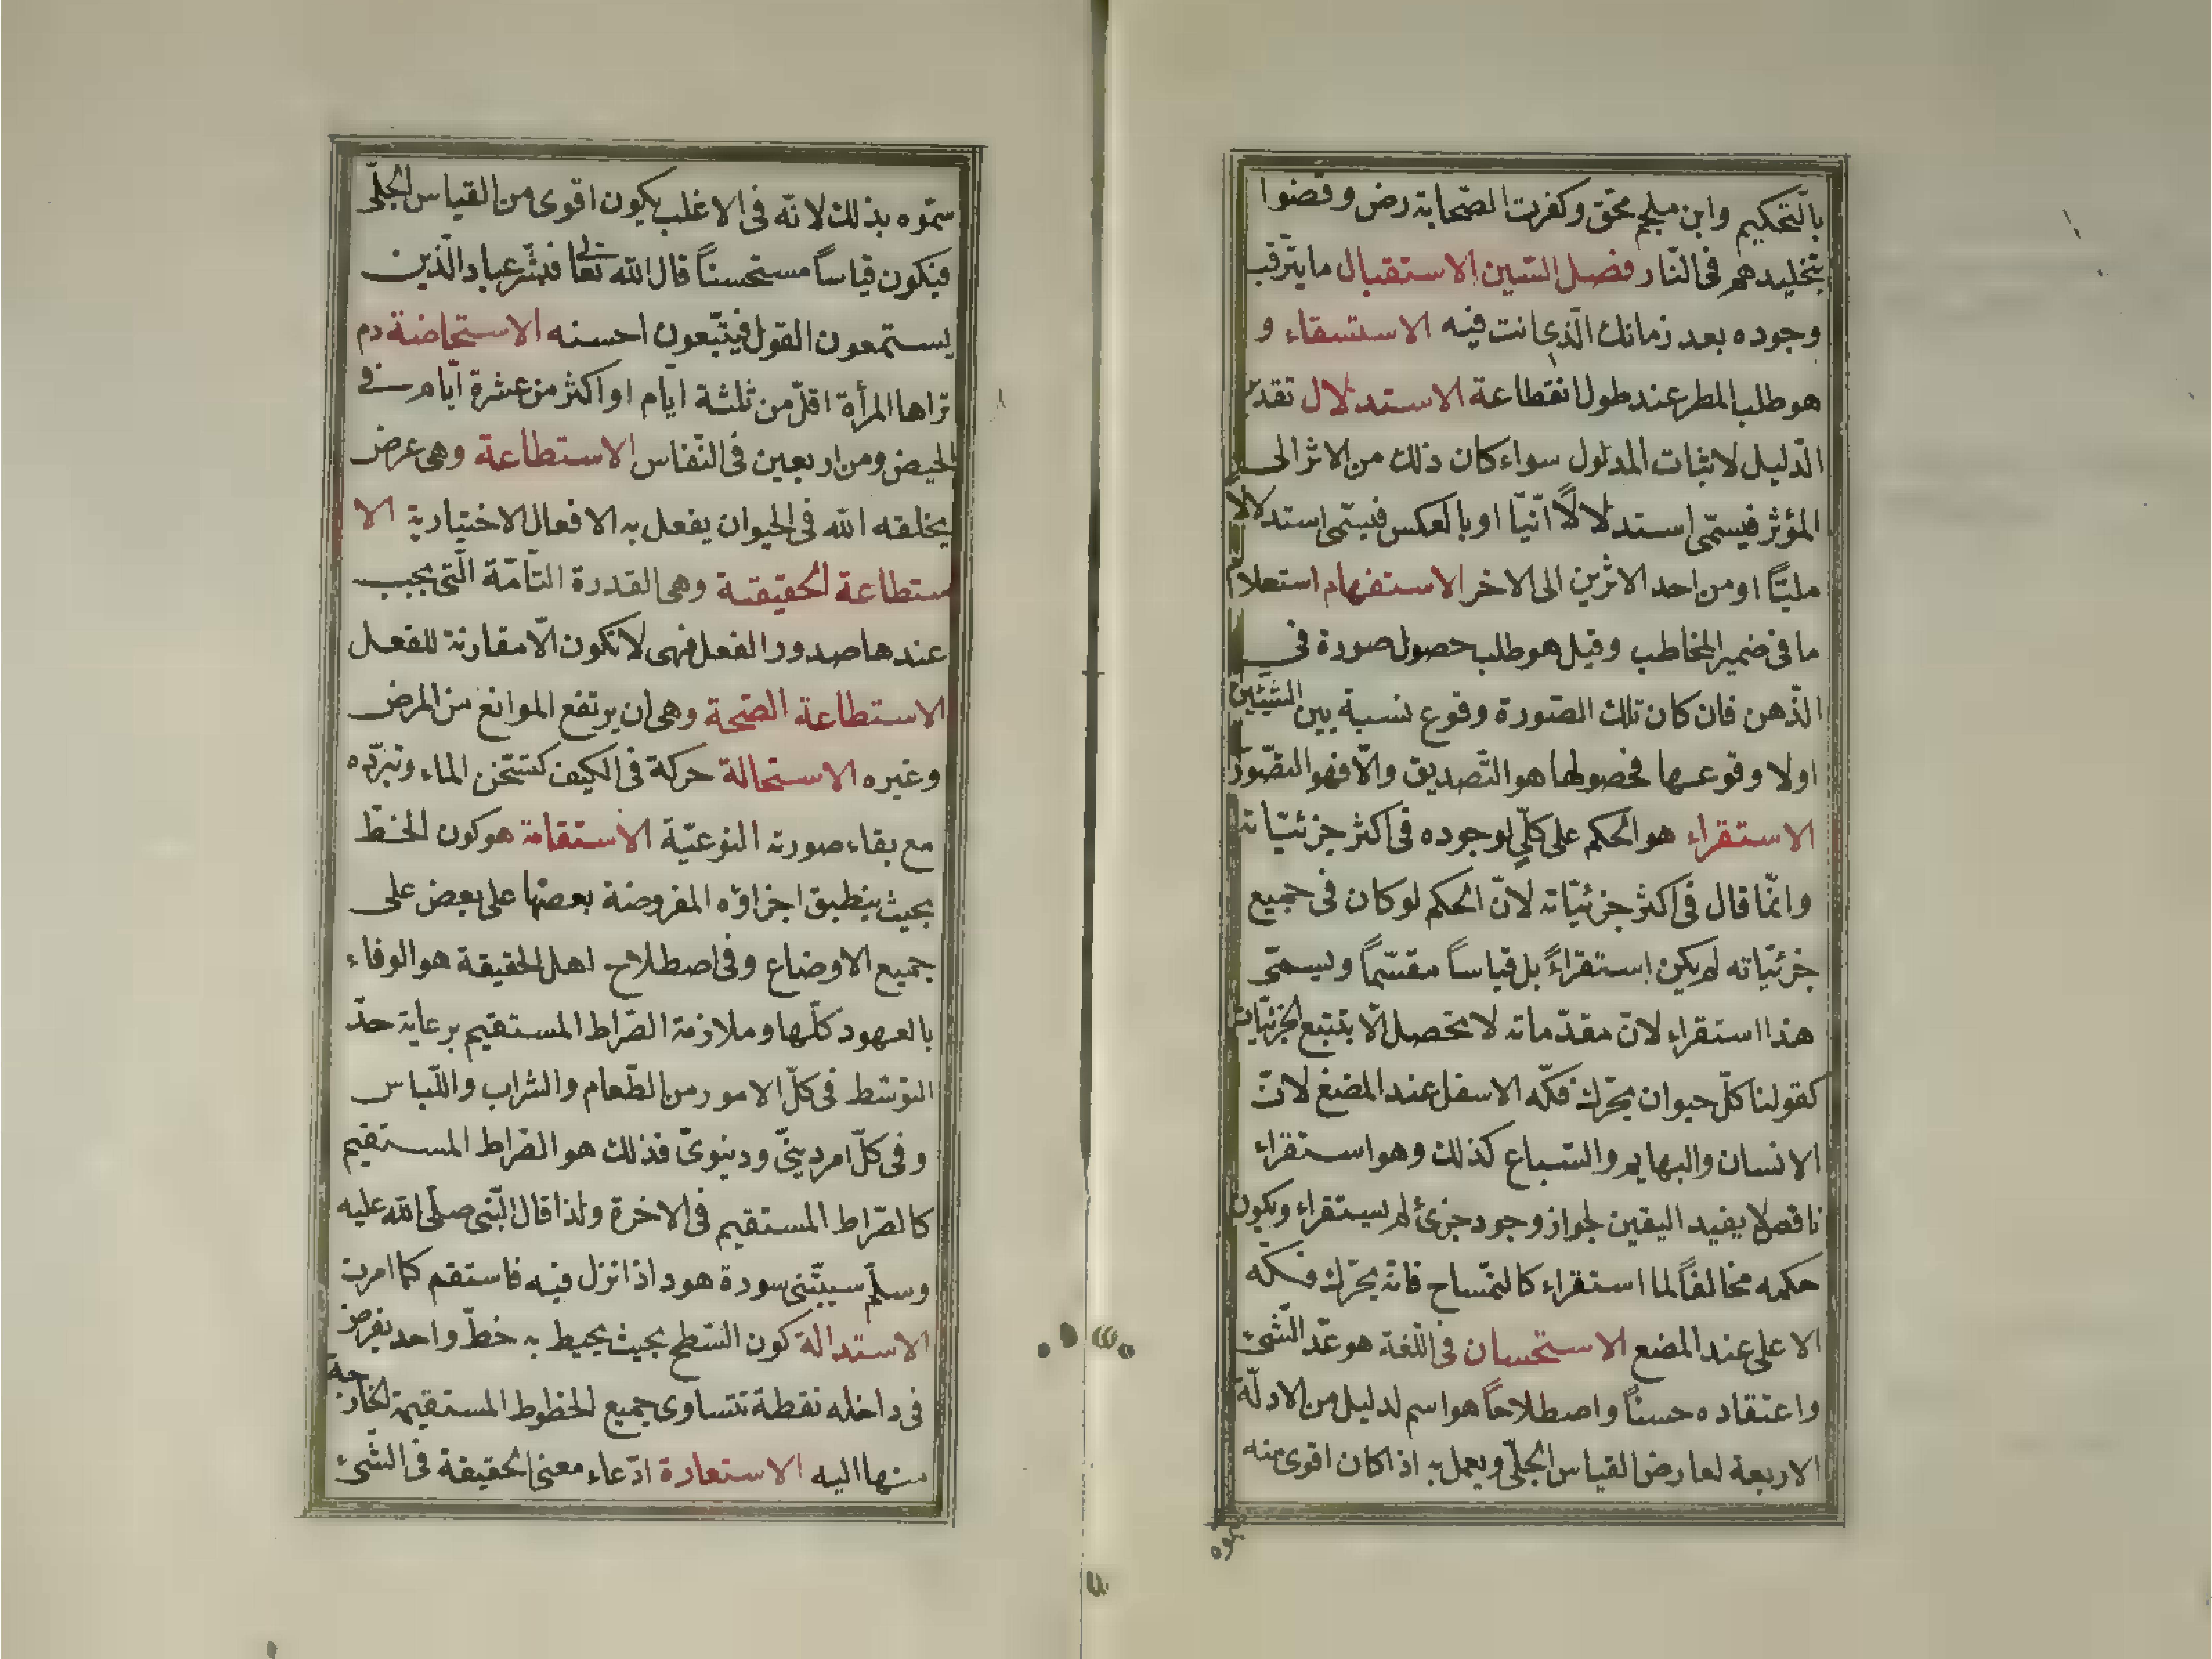 بالتّحكيم وابن ملجم محقّ وكفرت الصّحابة رض وقضوا
بتخليدهم فى النّار فصل السّين الاستقبال ما يترقّب
وجوده بعد زمانك الّذى انت فيه الاستسقاء و
هو طلب المطر عند طول انقطاعة الاستدلال تقدير
الدّليل لاثبات المدلول سواء كان ذلك من الاثر الى
المؤثر فيسمّى استدلالاً انّيّا او بالعكس فيسمّى استدلالا
مليّاً او من احد الاثرين الى الاخر الاستفهام استعلام
ما فى ضمير المخاطب وقيل هو طلب حصول صورة فى
الذّهن فان كان تلك الصّورة وقوع نسبة بين الشيئين
اولا وقوعها فحصولها هو التّصديق والّا فهو التصّور
الاستقراء هو الحكم على كلّىٍ لوجوده فى اكثر جزئيّاته
وانّما قال فى اكثر جزئيّاته لانّ الحكم لو كان فى جميع
جزئيّاته لم يكن استقراءً بل قياساً مقسّماً ويسمّى
هذا استقراء لانّ مقدّماته لا تحصل الّا بتتبع الجزئيّات
كقولنا كلّ حيوان يحرّك فكّه الاسفل عند المضغ لانّ
الانسان والبهايم والسّباع كذلك وهو استقراء
ناقص لا يفيد اليقين لجواز وجود جزئ لم يستقراء ويكون
حكمه مخالفاً لما استقراء كالتمّساح فانّه يحرّك فكّه
الاعلى عند المضع الاستحسان فى اللّغة هو عدّ الشّئ
واعتقاده حسناً واصطلاحاً هو اسم لدليل من الادلّة
الاربعة لعارض القياس الجلّى ويعمل به اذا كان اقوى منه
سمّوه
سمّوه بذلك لانّه فى الاغلب يكون اقوى من القياس الجلّى
فيكون قياساً مستحسناً قال الله تعالى فبشّر عباد الّذين
يستمعون القول فيتّبعون احسنه الاستحاضة دم
تراها المرأة اقلّ من ثلثة ايّام او اكثر من عشرة ايّام فى
الحيض ومن اربعين فى النّفاس الاستطاعة وهى عرض
يخلقه الله فى الحيوان يفعل به الافعال الاختيارية الا
ستطاعة الحقيقة وهى القدرة التّامّة الّتى يجب
عندها صدور الفعل فهى لا تكون الّا مقارنة للفعل
الاستطاعة الصّحة وهى ان يرتفع الموانع من المرض
وغيره الاستحالة حركة فى الكيف كتسّخن الماء وتبرّده
مع بقاء صورته النوعيّة الاستقامة هو كون الخطّ
بحيث ينطبق اجزاؤه المفروضة بعضها على بعض على
جميع الاوضاع وفى اصطلاح اهل الحقيقة هو الوفاء
بالعهود كلّها وملازمة الصّراط المستقيم برعاية حدّ
التوسّط فى كلّ الامور من الطّعام والشراب واللّباس
وفى كلّ امر دينّى ودنيوىّ فذلك هو الصّراط المستقيم
كالصّراط المستقيم فى الاخرة ولذا قال النّبى صلّى الله عليه
وسلّم سيبّتنى سورة هود اذ انزل فيه فاستقم كما امرت
الاستدالة كون السّطح بحيث يحيط به خطّ واحد يفرض
فى داخله نقطة تتساوى جميع الخطوط المستقيمة الخارجة
منها اليه الاستعارة ادّعاء معنى الحقيقة فى الشّئ